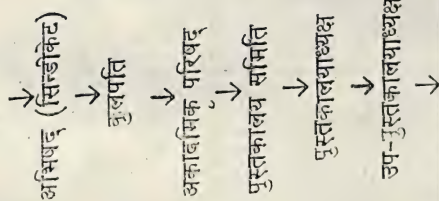 अभिषद् (सिन्डीकेट)
कुलपति
अकादमिक परिषद्
पुस्तकालय समिति
पुस्तकालयाध्यक्ष
उप-पुस्तकालयाध्यक्ष